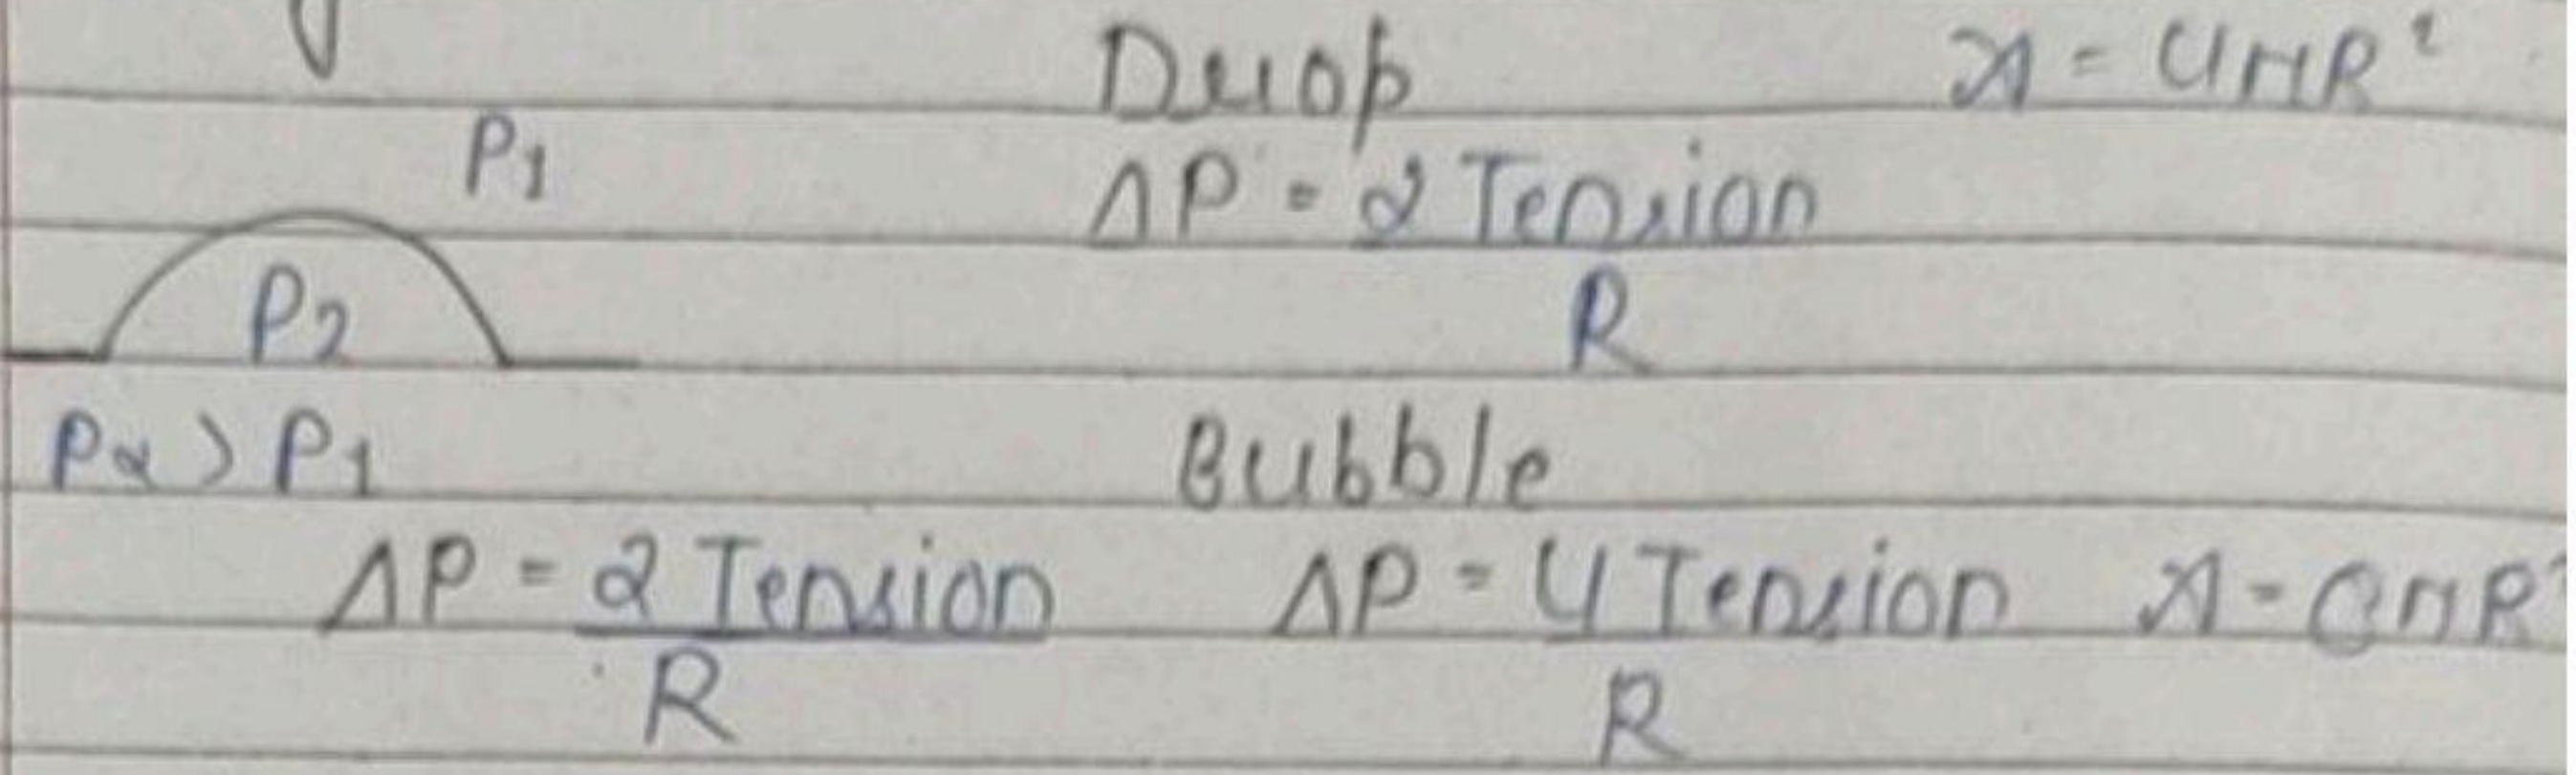 Drop A = 4πR²
P1
ΔP = 2 Tension / R
P2
P2 > P1 Bubble
ΔP = 2 Tension / R ΔP = 4 Tension / R A = 8πR²